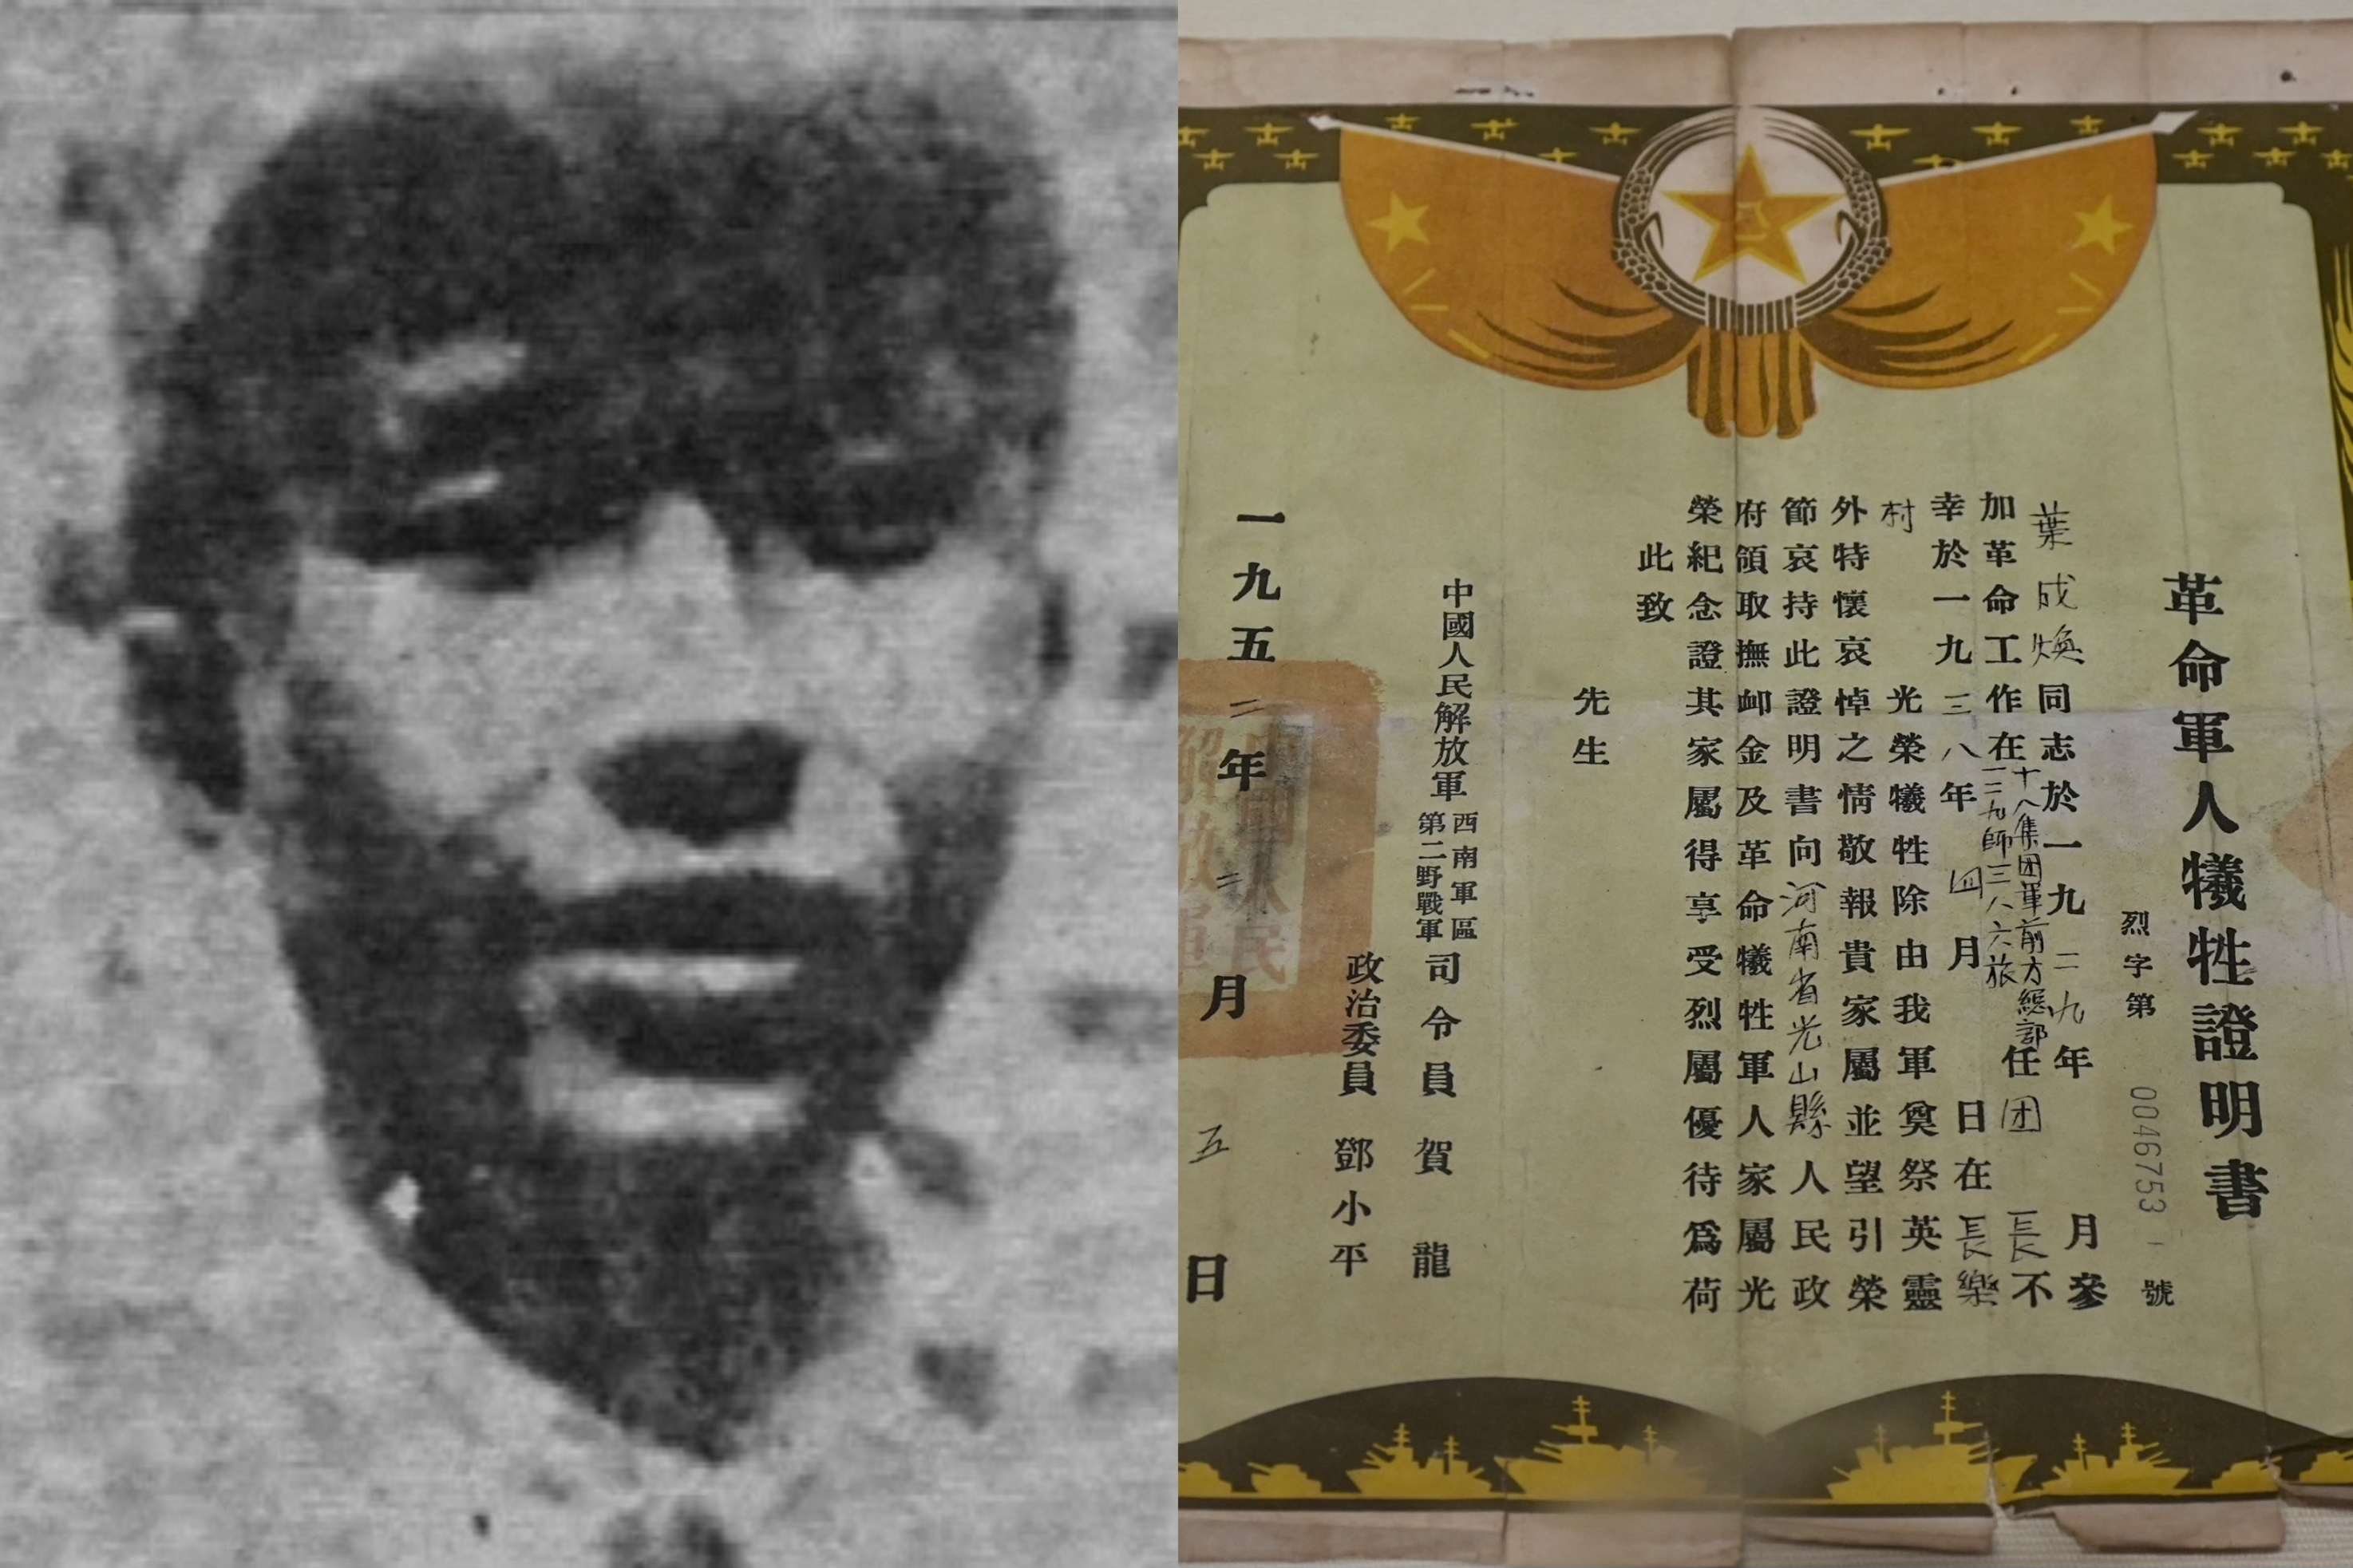 革命軍人犧牲證明書
烈字第 0046753 號
葉成煥同志於一九二九年 月參
加革命工作在十八集团軍前方總部一二九師三八六旅任团長不
幸於一九三八年四月 日在長樂
村光榮犧牲除由我軍奠祭英靈
外特懷哀悼之情敬報貴家屬並望引榮
節哀持此證明書向河南省光山縣人民政
府領取撫卹金及革命犧牲軍人家屬光
榮紀念證其家屬得享受烈屬優待爲荷
此致
先生
中國人民解放軍西南軍區第二野戰軍司令員賀龍
政治委員鄧小平
一九五二年二月五日